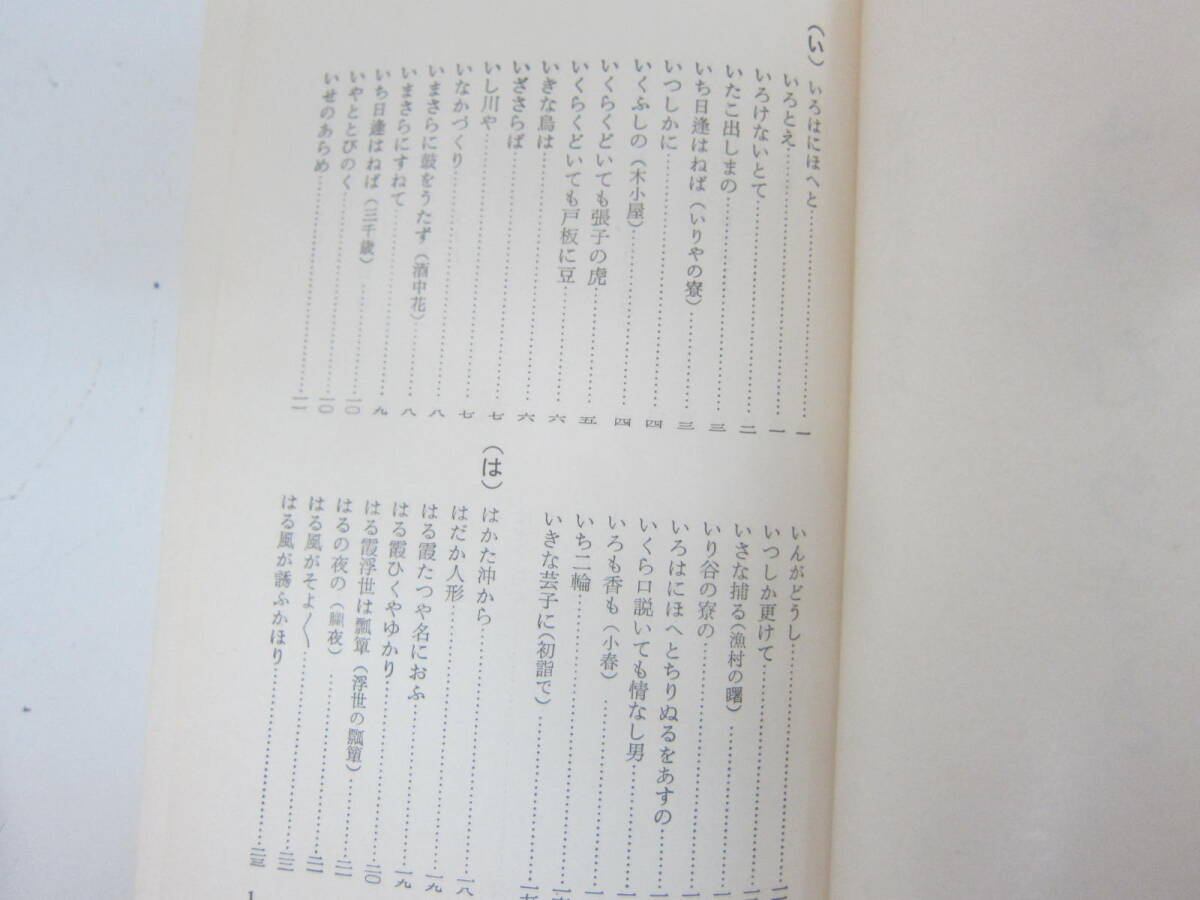 (い) いろはにほへと……一
いろとえ……一
いろけないとて……二
いたこ出しまの……三
いち日逢はねば(いりやの寮)……三
いつしかに……四
いくふしの(木小屋)……四
いくらくどいても張子の虎……五
いくらくどいても戸板に豆……六
いきな鳥は……六
いざさらば……七
いし川や……七
いなかづくり……八
いまさらに鼓をうたず(酒中花)……八
いまさらにすねて……九
いち日逢はねば(三千歳)……一〇
いやととびのく……一〇
いせのあらめ……一一
いんがどうし……
いつしか更けて……
いさな捕る(漁村の曙)……
いり谷の寮の……
いろはにほへとちりぬるをあすの……
いくら口説いても情なし男……
いろも香も(小春)……
いち二輪……
いきな芸子に(初詣で)……
(は) はかた沖から……一八
はだか人形……一九
はる霞たつや名におふ……一九
はる霞ひくやゆかり……二〇
はる霞浮世は瓢箪(浮世の瓢箪)……二一
はるの夜の(朧夜)……二一
はる風がそよ〱……二二
はる風が誘ふかほり……二三
1